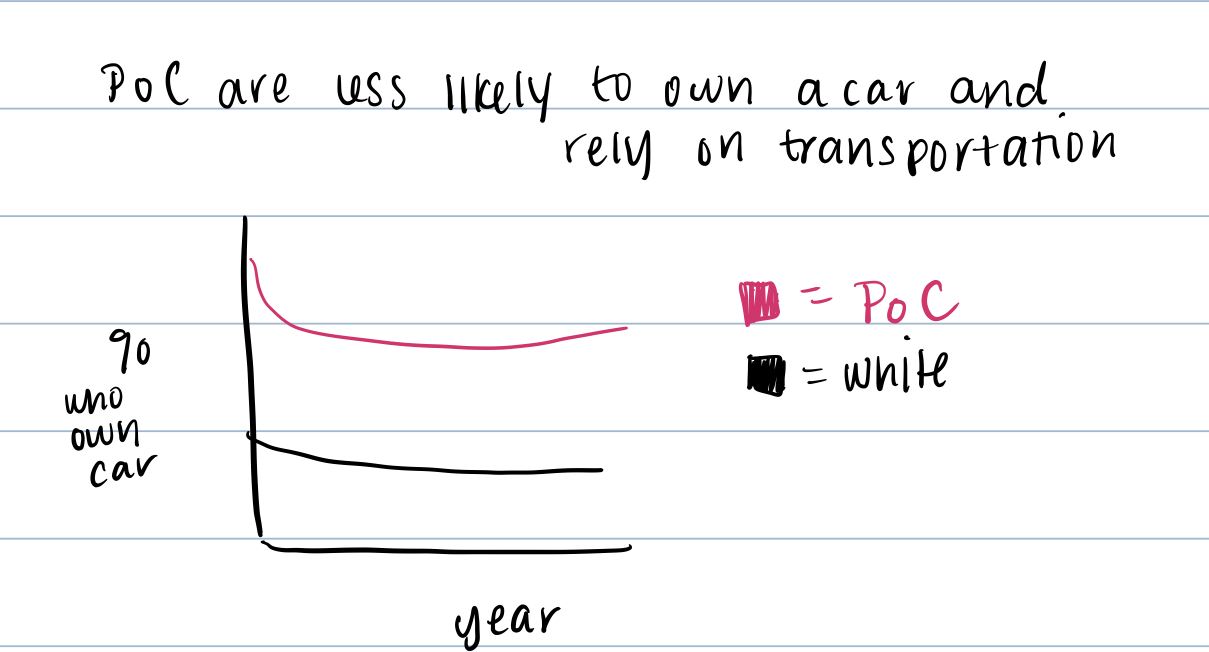 PoC are less likely to own a car and
rely on transportation
= PoC
% 
who
own
car
= white
year